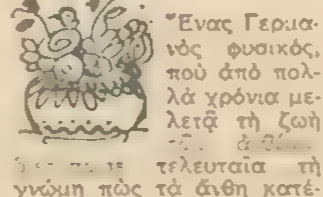 Ἕνας Γερμα-
νὸς φυσικός,
ποὺ ἀπὸ πολ-
λὰ χρόνια με-
λετᾷ τὴ ζωὴ
τελευταῖα τὴ
γνώμη πὼς τὰ ἄνθη κατέ-